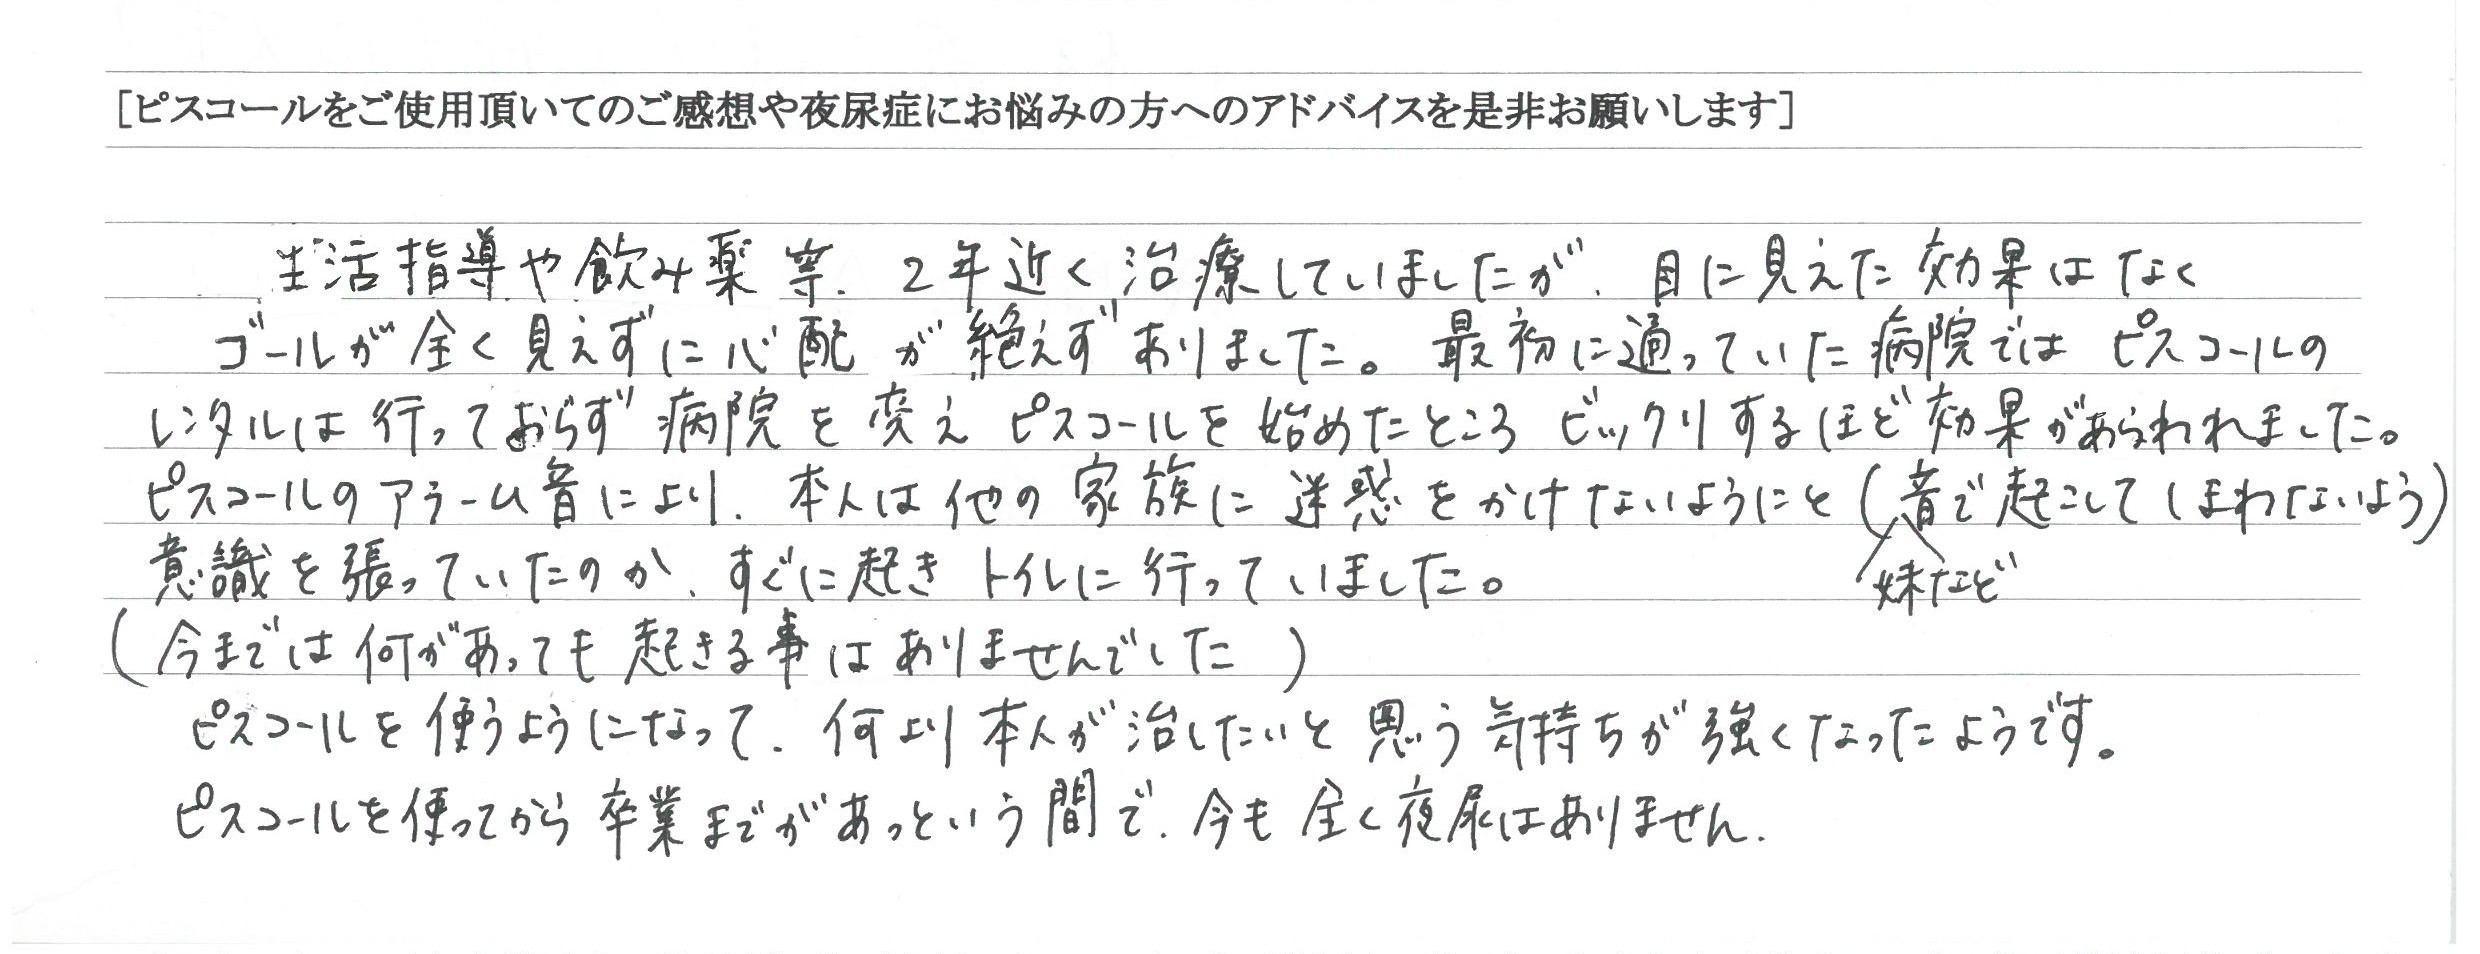 [ピスコールをご使用頂いてのご感想や夜尿症にお悩みの方へのアドバイスを是非お願いします]
生活指導や飲み薬等、2年近く治療していましたが、目に見えた効果はなく
ゴールが全く見えずに心配が絶えずありました。最初に通っていた病院ではピスコールの
レンタルは行っておらず病院を変えピスコールを始めたところビックリするほど効果があらわれました。
ピスコールのアラーム音により、本人は他の家族に迷惑をかけないようにと(音で起こしてしまわないよう)
妹など
意識を張っていたのか、すぐに起きトイレに行っていました。
(今までは何があっても起きる事はありませんでした)
ピスコールを使うようになって、何より本人が治したいと思う気持ちが強くなったようです。
ピスコールを使ってから卒業までがあっという間で、今も全く夜尿はありません。